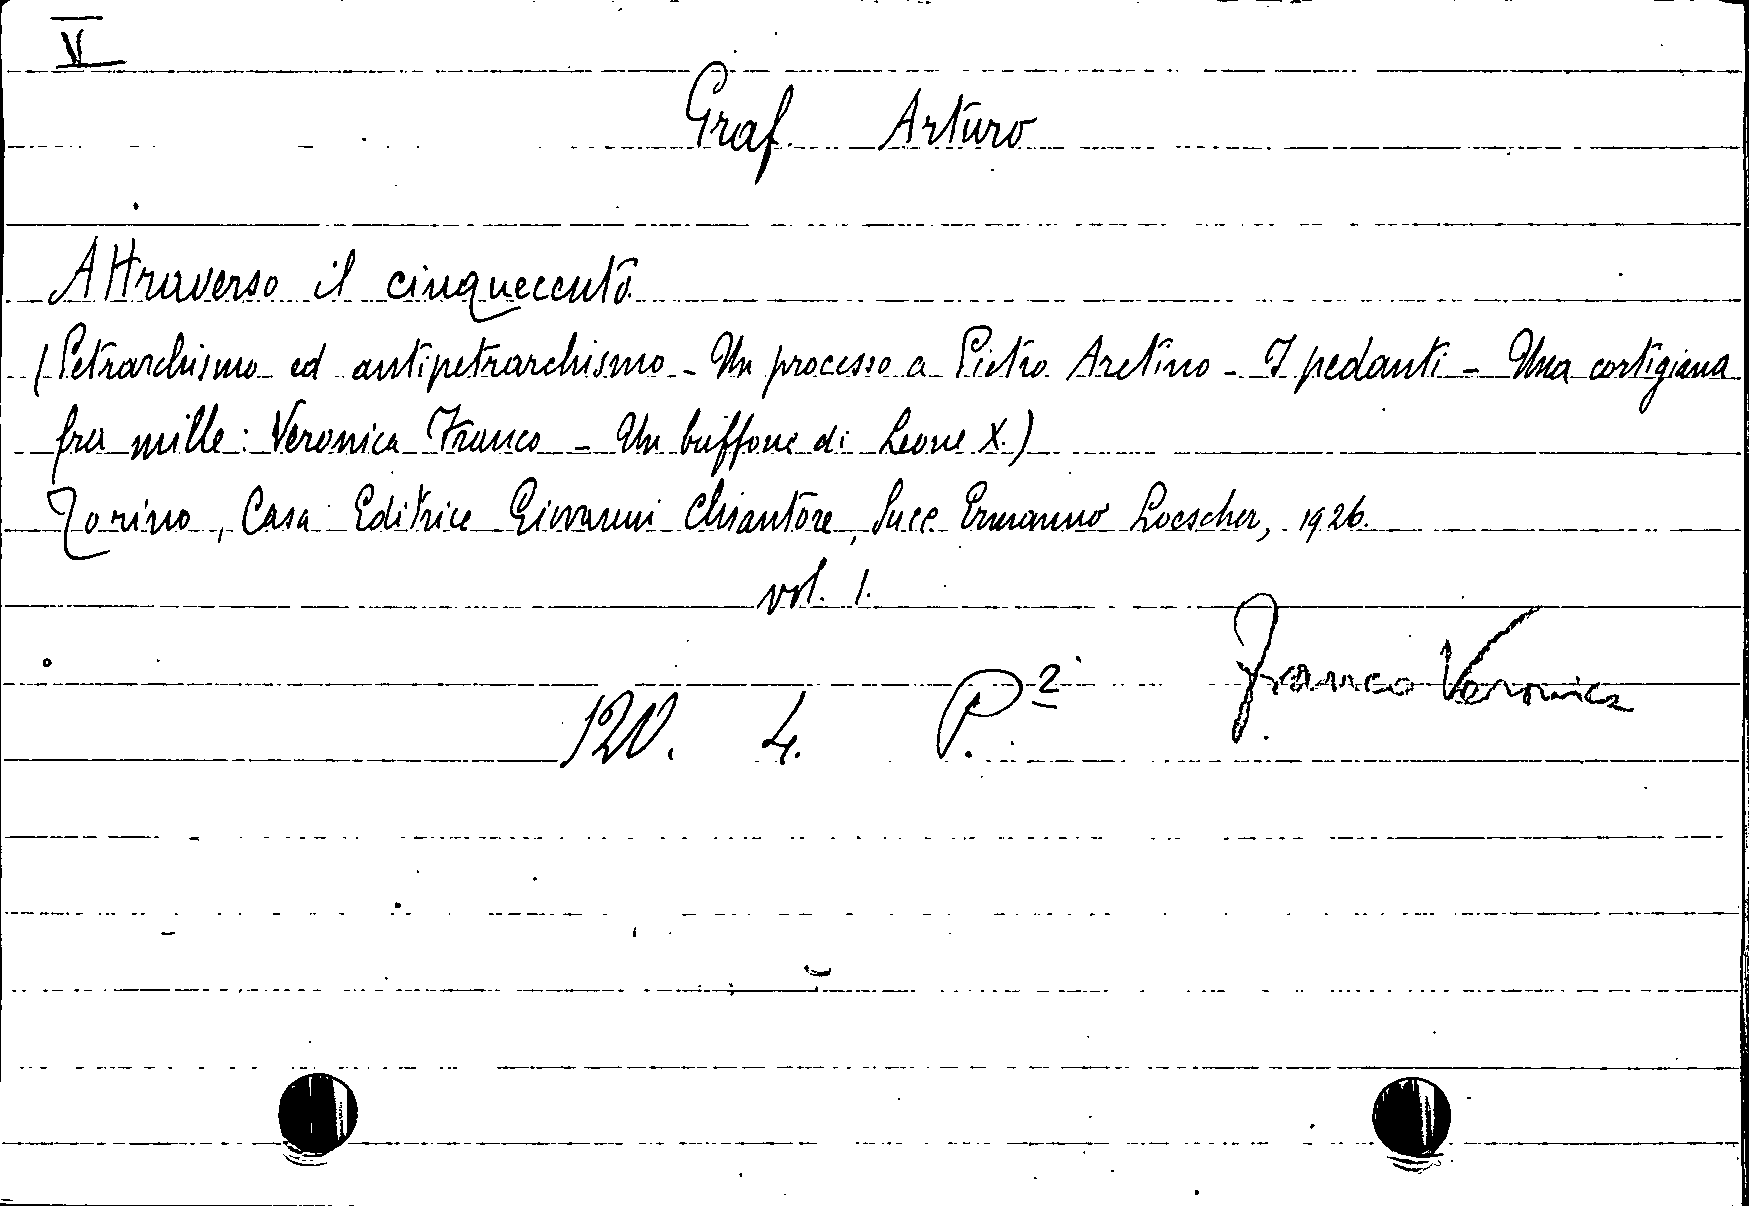 V
Graf Arturo
Attraverso il cinquecento
(Petrarchismo ed antipetrarchismo - Un processo a Pietro Aretino - I pedanti - Una cortigiana
fra mille: Veronica Franco - Un buffone di Leone X.)
Torino, Casa Editrice Giovanni Chiantore, Succ. Ermanno Loescher, 1926.
vol. 1.
Franco Veronica
120. 4. P.2